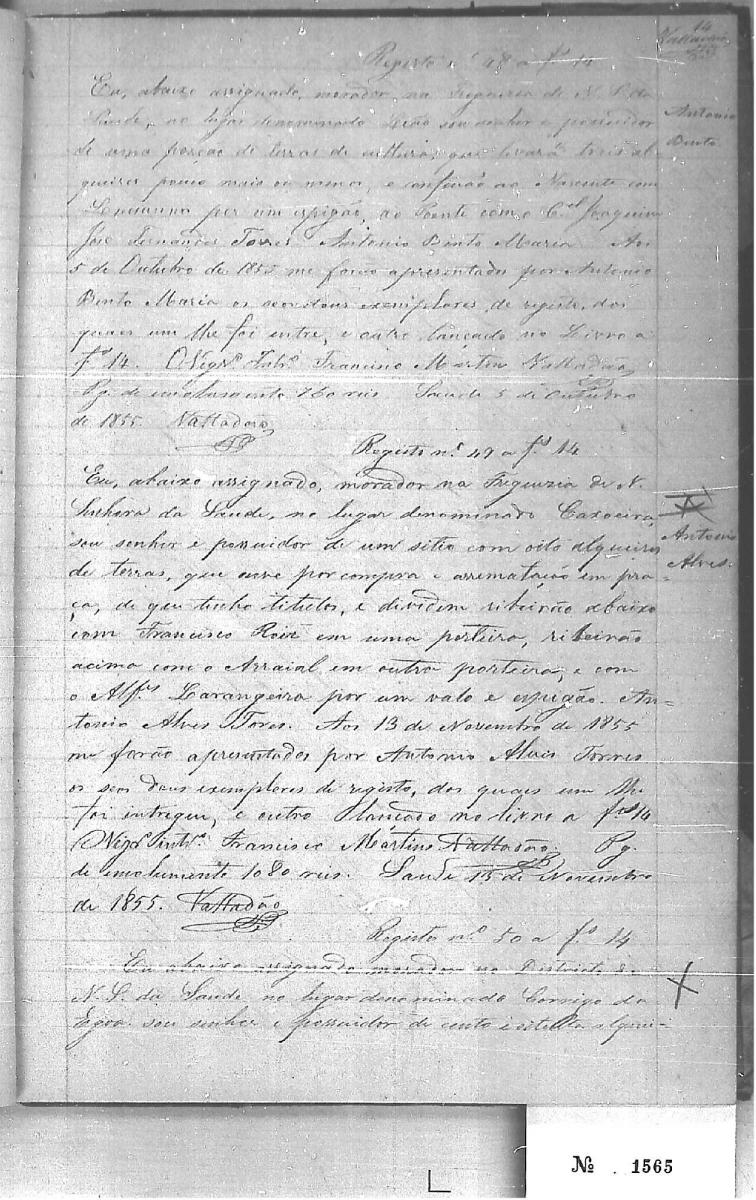 14
Valladão
Registo nº 48 a fs 14
Eu, abaixo assignado, morador, na Freguezia de N. S. da
Saude, no lugar denominado Leão sou senhor e possuidor
de uma porção de terras de cultura, que levará tres al-
queires pouco mais ou menos, e confinão ao Nascente com
por um espigão, ao Poente com o Cel Joaquim
José Fernandes Torres. Antonio Bento Maria. Aos
5 de Outubro de 1855 me forão apresentados por Antonio
Bento Maria os seos dous exemplares, de registo, dos
quaes um lhe foi entre, e outro lançado no Livro a
fs 14. O Vigrº Intº Francisco Martins Valladão
Pg. de emolumento 260 reis. Saude 5 de Outubro
de 1855. Valladão
Antonio
Bento
Registo nº 49 a fs 14
Eu, abaixo assignado, morador na Freguezia de N.
Senhora da Saude, no lugar denominado Caxoeira,
sou senhor e possuidor de um sitio com oito alqueires
de terras, que ouve por compra e arrematação em pra-
ça, de que tenho titulos, e dividem ribeirão abaixo
com Francisco Roiz em uma porteira, ribeirão
acima com o Arraial em outra porteira, e com
o Alfs Larangeira por um valo e espigão. An-
tonio Alves Torres. Aos 13 de Novembro de 1855
me forão apresentados por Antonio Alves Torres
os seos dous exemplares de registo, dos quaes um lhe
foi intregue, e outro lançado no livro a fs 14
O Vigrº intº Francisco Martins Valladão. Pg.
de emolumento 1080 reis. Saude 13 de Novembro
de 1855. Valladão
Antonio
Alves.
Registo nº 50 a fs 14
Eu abaixo assignado morador no Districto de
N. S. da Saude no lugar denominado Corrigo da
Egoa sou senhor e possuidor de cento e setenta alquei-
Nº 1565